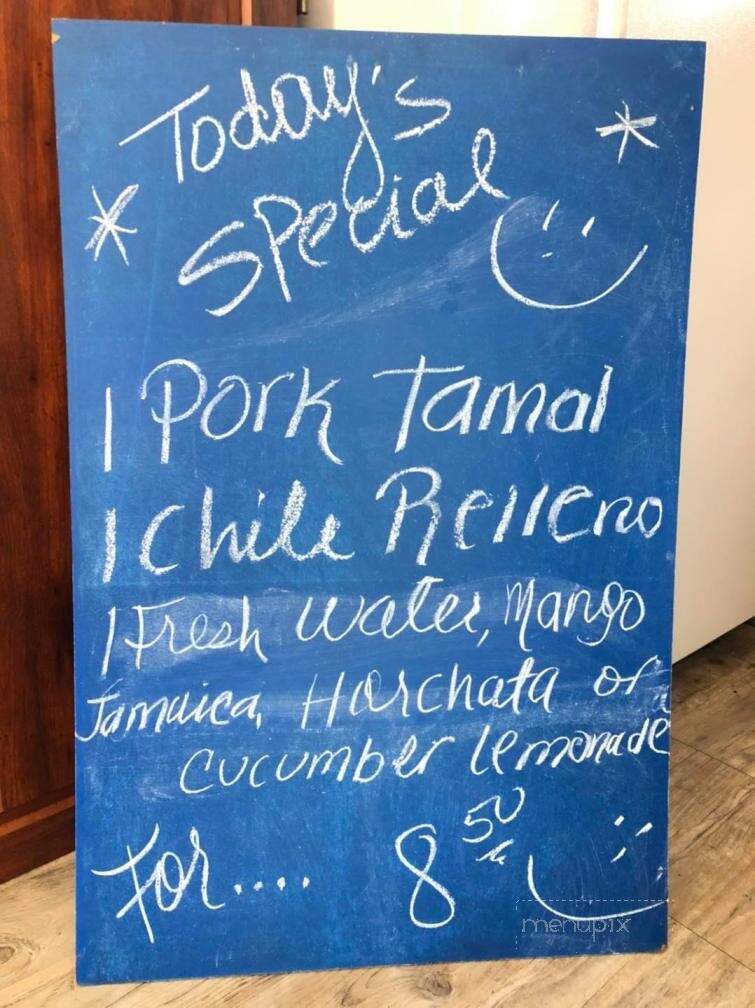 Today's
Special
1 Pork Tamal
1 Chile Relleno
1 Fresh Water, Mango
Jamaica, Horchata or
Cucumber Lemonade
For.... 8 50
menupix